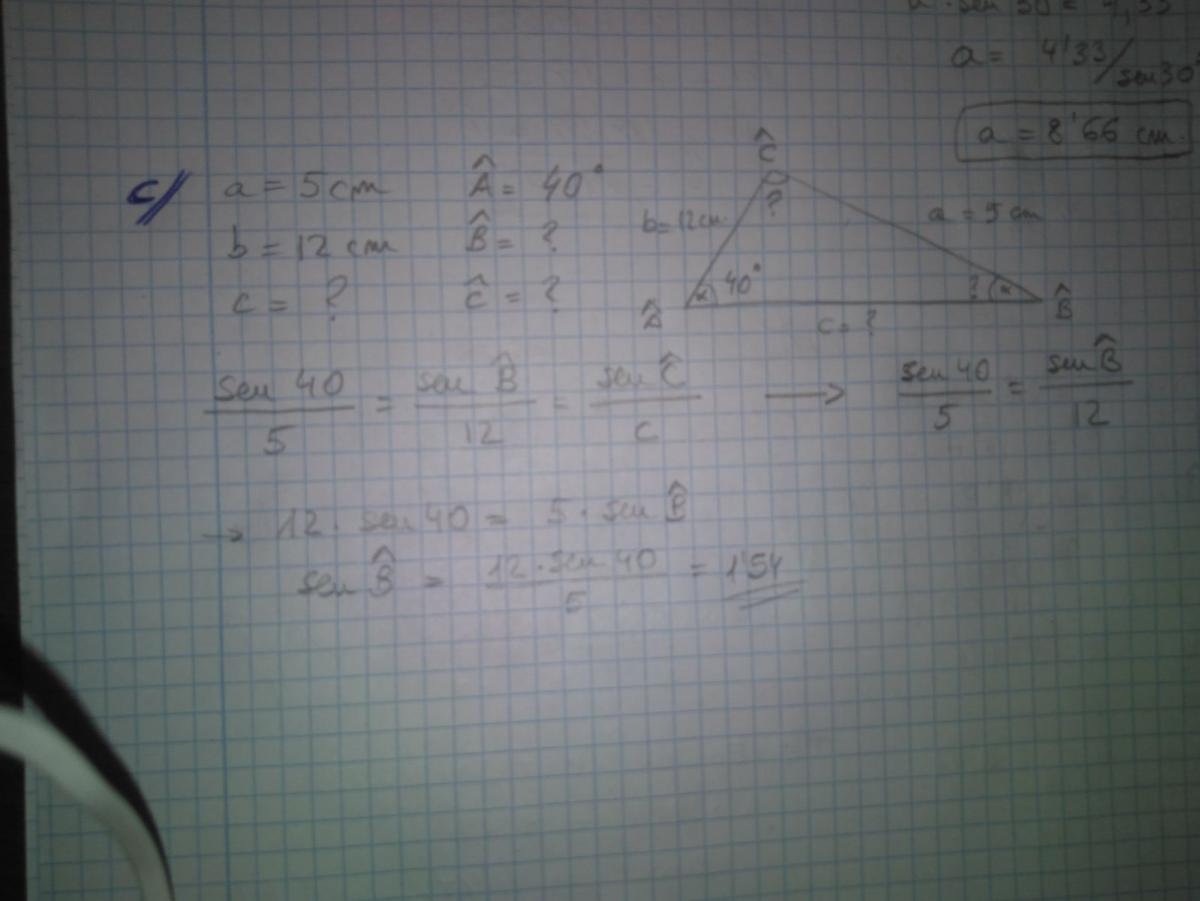 a = 4'33/sen30°
a = 8'66 cm.
c// a = 5 cm Â = 40°
b = 12 cm B̂ = ?
c = ? Ĉ = ?
Ĉ
?
b = 12 cm
a = 5 cm
α 40°
? α
Â
B̂
c = ?
sen 40/5 = sen B̂/12 = sen Ĉ/c → sen 40/5 = sen B̂/12
→ 12 · sen 40 = 5 · sen B̂
sen B̂ = 12 · sen 40/5 = 1'54